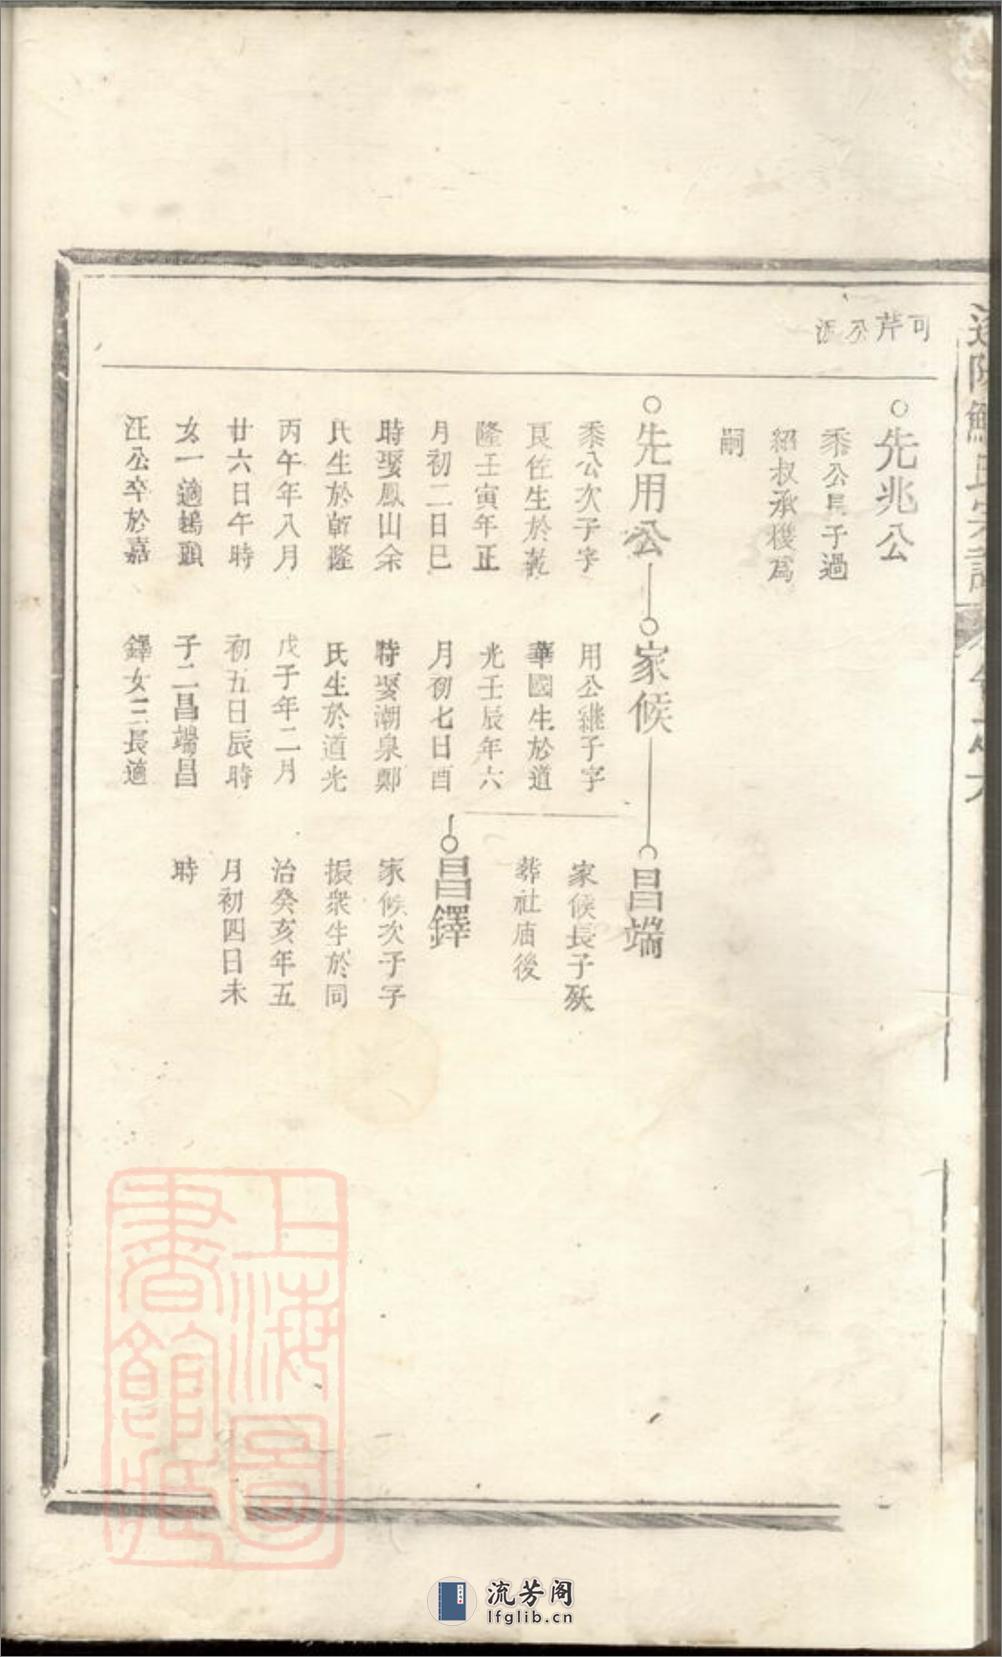 可芹公派
先兆公
黍公長子過
紹叔承機爲
嗣
先用公
黍公次子字
艮佐生於乾
隆壬寅年正
月初二日巳
時娶鳳山余
氏生於乾隆
丙午年八月
廿六日午時
女一適鵝頭
汪公卒於嘉
家候
用公繼子字
華國生於道
光壬辰年六
月初七日酉
時娶潮泉鄭
氏生於道光
戊子年二月
初五日辰時
子二昌端昌
鐸女三長適
昌端
家候長子殀
葬社庙後
昌鐸
家候次子字
振衆生於同
治癸亥年五
月初四日未
時
上海圖
書館藏
流芳阁
lfglib.cn